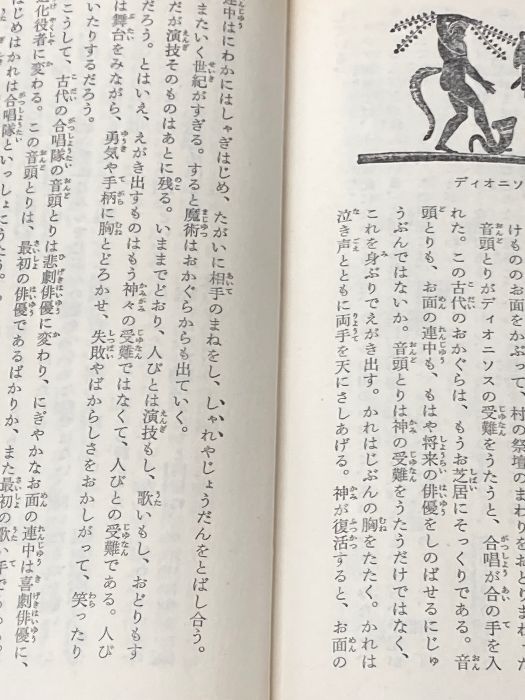 ディオニソ
けもののお面をかぶって、村の祭壇のまわりをおどりまわった
音頭とりがディオニソスの受難をうたうと、合唱が合の手を入
れた。この古代のおかぐらは、もうお芝居にそっくりである。音
頭とりも、お面の連中も、もはや将来の俳優をしのばせるにじゅ
うぶんではないか。音頭とりは神の受難をうたうだけではなく、
これを身ぶりでえがき出す。かれはじぶんの胸をたたく。かれは
泣き声とともに両手を天にさしあげる。神が復活すると、お面の
連中はにわかにはしゃぎはじめ、たがいに相手のまねをし、しゃれやじょうだんをとばし合う。
またいく世紀がすぎる。すると魔術はおかぐらからも出ていく。
だが演技そのものはあとに残る。いままでどおり、人びとは演技もし、歌いもし、おどりもす
だろう。とはいえ、えがき出すものはもう神々の受難ではなくて、人びとの受難である。人び
は舞台をみながら、勇気や手柄に胸とどろかせ、失敗やばからしさをおかしがって、笑ったり
いたりするだろう。
こうして、古代の合唱隊の音頭とりは悲劇俳優に変わり、にぎやかなお面の連中は喜劇俳優に、
道化役者に変わる。この音頭とりは、最初の俳優であるばかりか、また最初の歌い手で
はじめはかれは合唱隊といっしょにうたう。